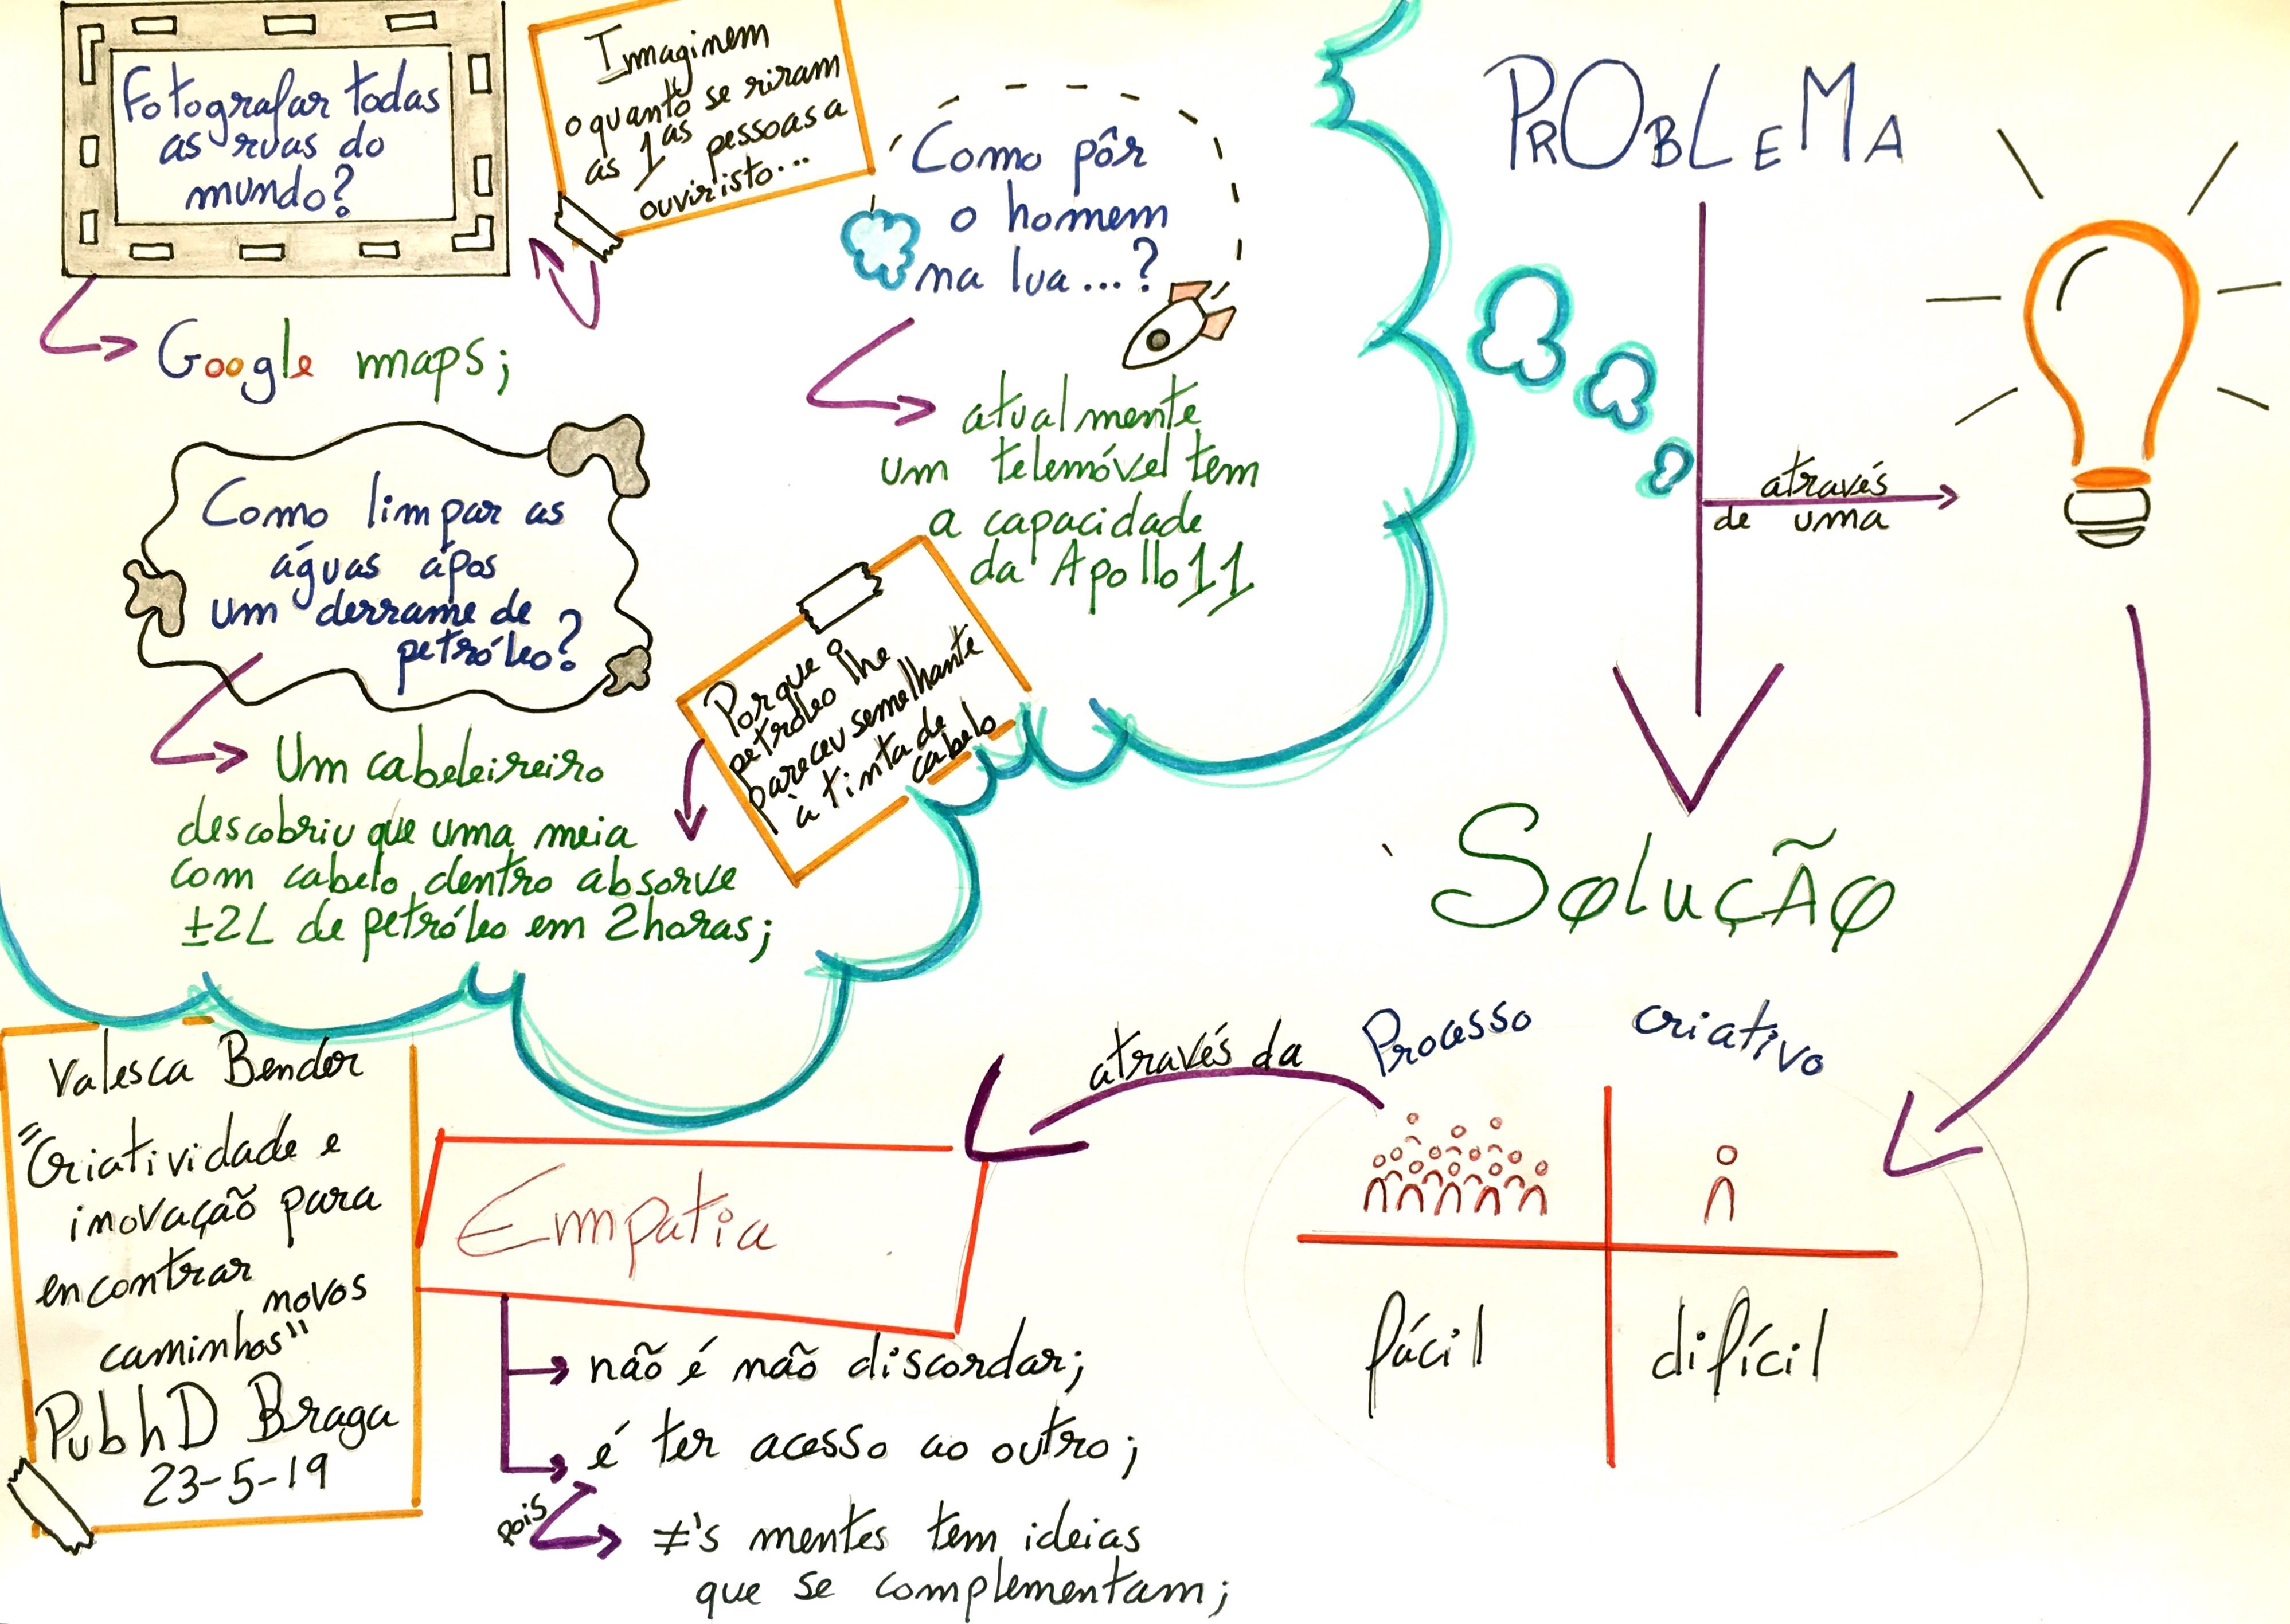 Fotografar todas
as ruas do
mundo?
Google maps;
Immaginem
o quanto se riram
as 1as pessoas a
ouvir isto...
Como pôr
o homem
na lua...?
atualmente
um telemóvel tem
a capacidade
da Apollo 11
Como limpar as
águas ápos
um derrame de
petróleo?
Um cabeleireiro
descobriu que uma meia
com cabelo dentro absorve
±2L de petróleo em 2horas;
Porque o
petróleo lhe
pareceu semelhante
à tinta de
cabelo
PROBLEMA
através
de uma
SOLUÇÃO
Processo criativo
fácil
difícil
através da
Empatia
não é não discordar;
é ter acesso ao outro;
pois
≠'s mentes tem ideias
que se complementam;
Valesca Bender
"Criatividade e
inovação para
encontrar
novos
caminhos"
PubhD Braga
23-5-19